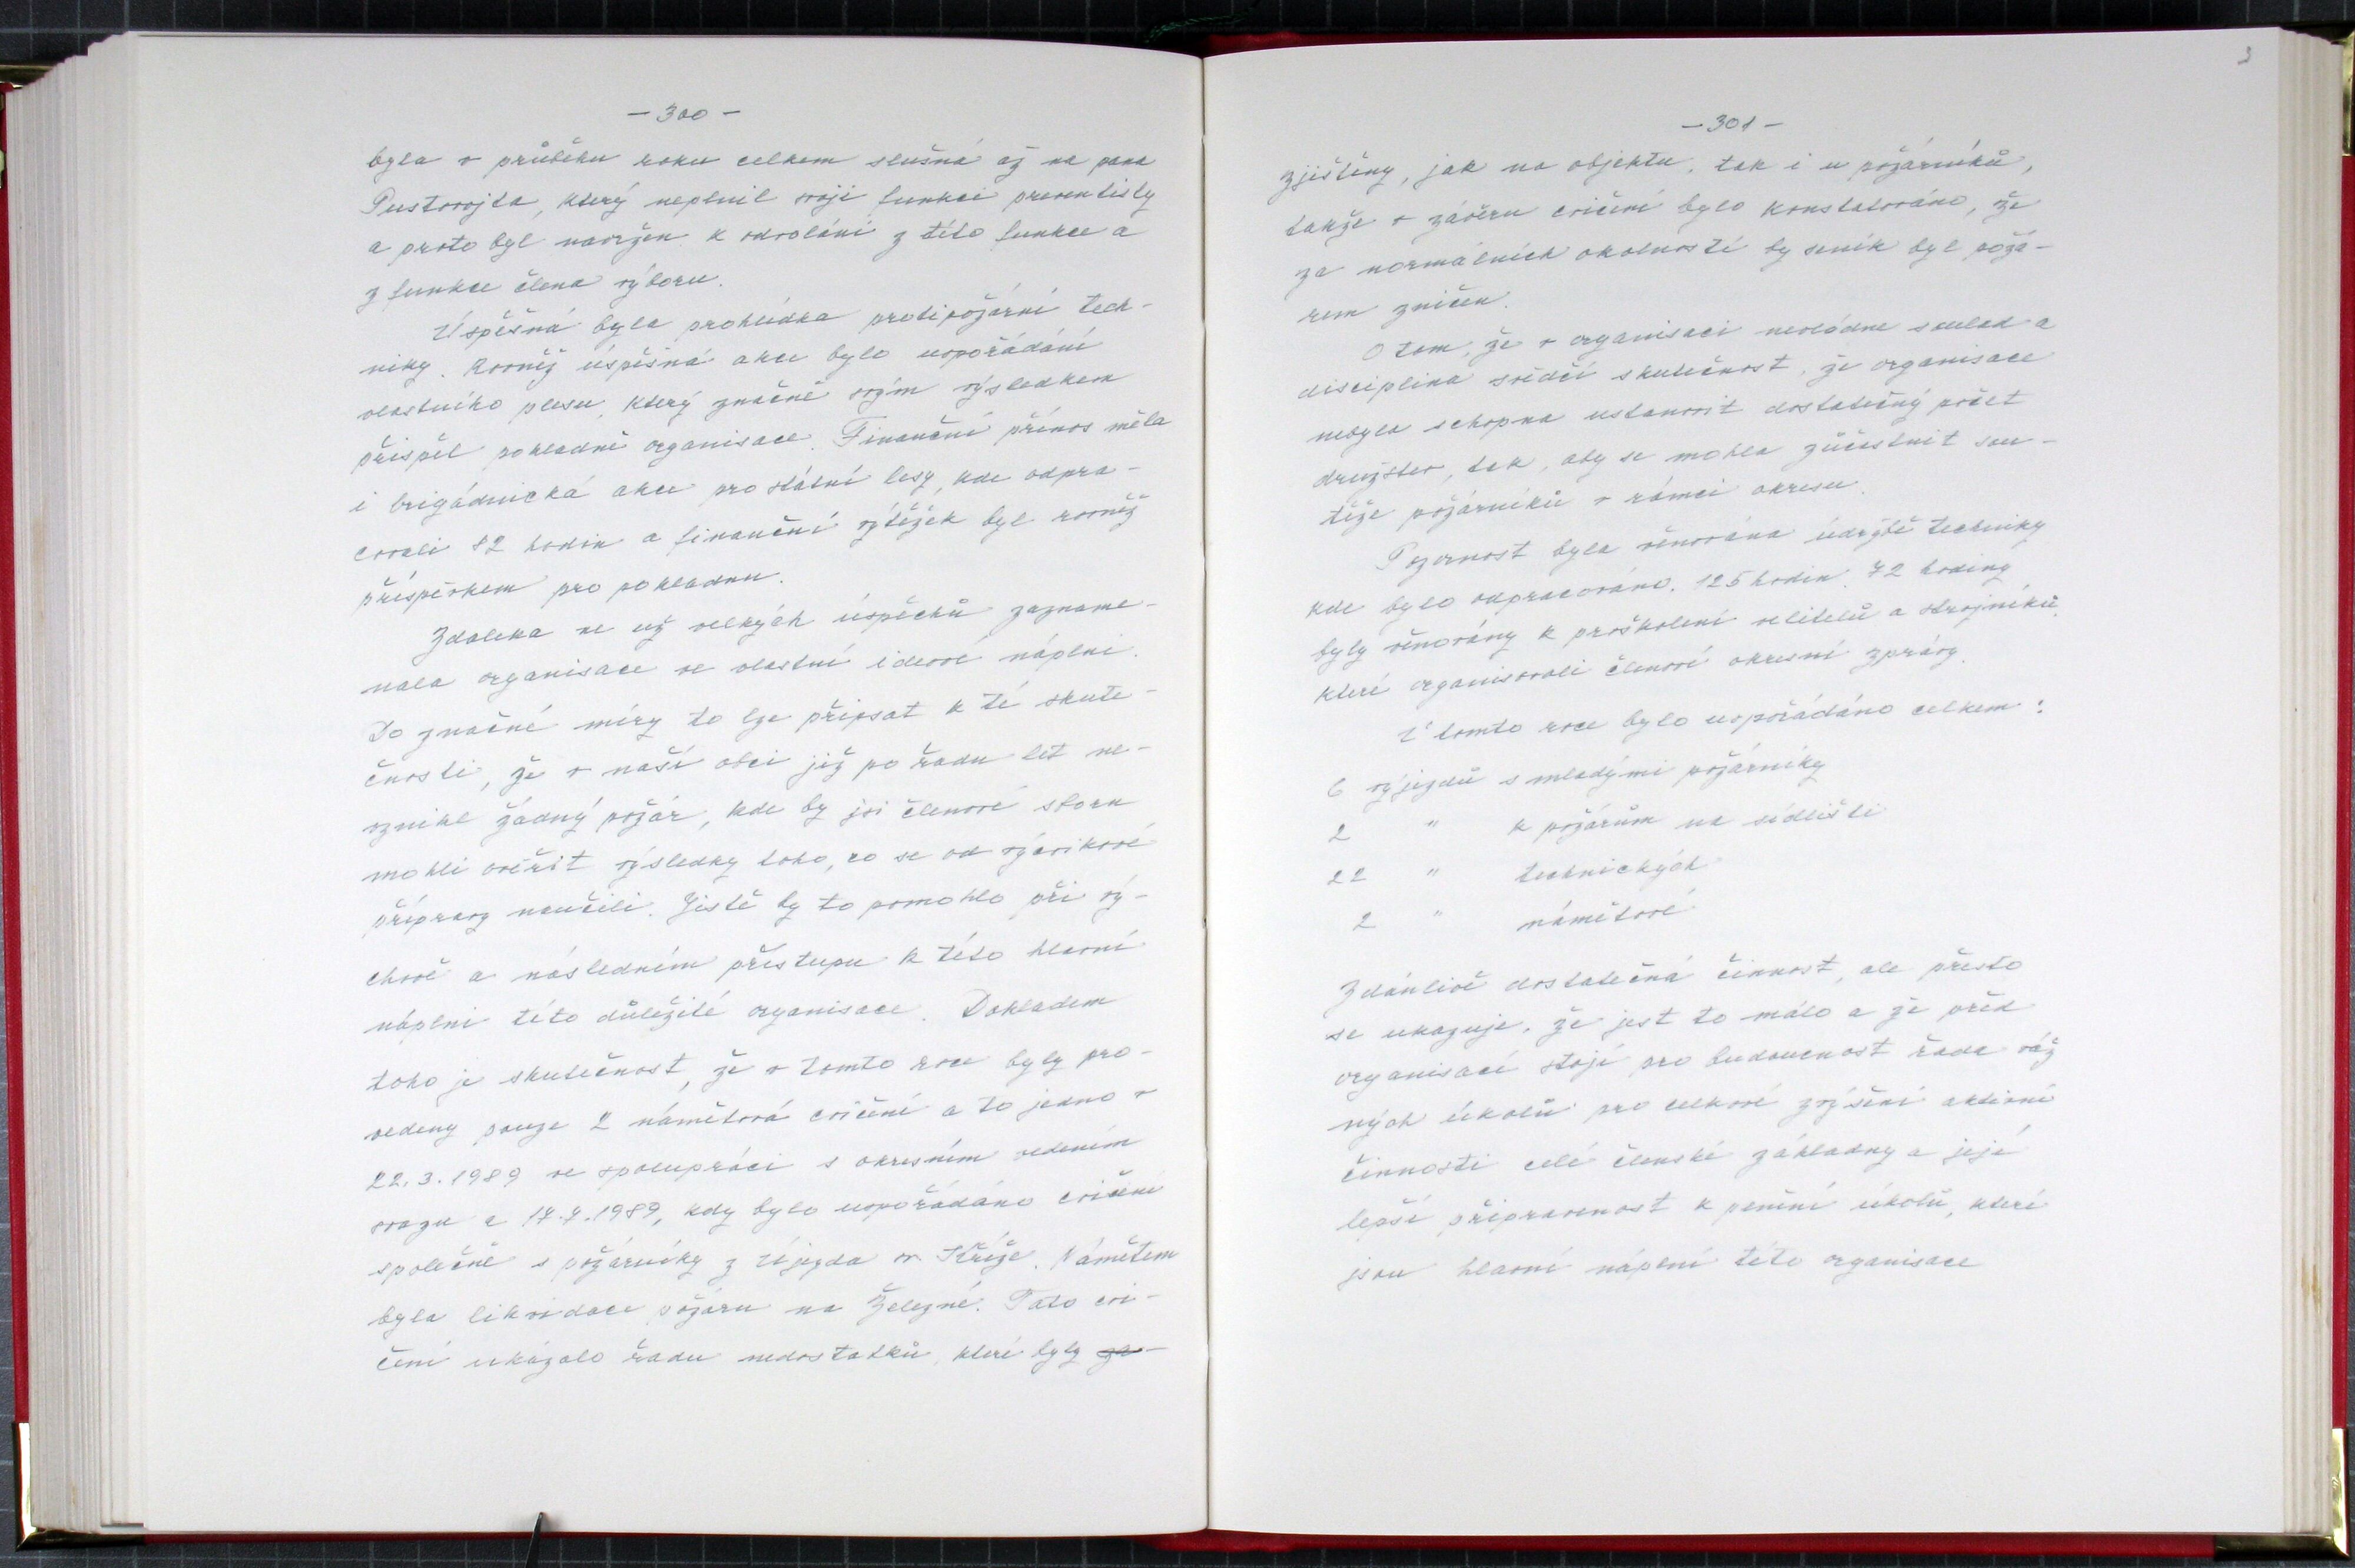 - 300 -
byla v průběhu roku celkem slušná až na pana
Pustovojta, který neplnil svoji funkci preventisty
a proto byl navržen k odvolání z této funkce a
z funkce člena výboru.
Úspěšná byla prohlídka protipožární tech-
niky. Rovněž úspěšná akce bylo uspořádání
vlastního plesu, který značně svým výsledkem
přispěl pokladně organisace. Finanční přínos měla
i brigádnická akce pro státní lesy, kde odpra-
covali 82 hodin a finanční výtěžek byl rovněž
příspěvkem pro pokladnu.
Zdaleka ne už velkých úspěchů zazname-
nala organisace ve vlastní ideové náplni.
Do značné míry to lze připsat k té skute-
čnosti, že v naší obci již po řadu let ne-
vznikl žádný požár, kde by jsi členové sboru
mohli ověřit výsledky toho, co se od výcvikové
přípravy naučili. Jistě by to pomohlo při vý-
chově a následném přístupu k této hlavní
náplni této důležité organisace. Dokladem
toho je skutečnost, že v tomto roce byly pro-
vedeny pouze 2 námětová cvičení a to jedno v
22.3.1989 ve spolupráci s okresním vedením
svazu a 17.7.1989, kdy bylo uspořádáno cvičení
společně s požárníky z Újezda sv. Kříže. Námětem
byla likvidace požáru na Železné. Toto cvi-
čení ukázalo řadu nedostatků, které byly za-
3
- 301 -
zjištěny, jak na objektu, tak i u požárníků,
takže v závěru cvičení bylo konstatováno, že
za normálních okolností by seník byl požá-
rem zničen.
O tom, že v organisaci nevládne soulad a
disciplina svědčí skutečnost, že organisace
nebyla schopna ustanovit dostatečný počet
družstev, tak, aby se mohla zúčastnit sou-
těže požárníků v rámci okresu.
Pozornost byla věnována údržbě techniky
kde bylo odpracováno 125 hodin. 72 hodiny
byly věnovány k proškolení velitelů a strojníků,
které organisovali členové okresní zprávy.
V tomto roce bylo uspořádáno celkem:
6 výjezdů s mladými požárníky
2 " k požárům na sídlišti
22 " technických
2 " námětové
Zdánlivě dostatečná činnost, ale přesto
se ukazuje, že jest to málo a že před
organisací stojí pro budoucnost řada váž
ných úkolů pro celkové zvýšení aktivní
činnosti celé členské základny a její
lepší připravenost k plnění úkolů, které
jsou hlavní náplní této organisace